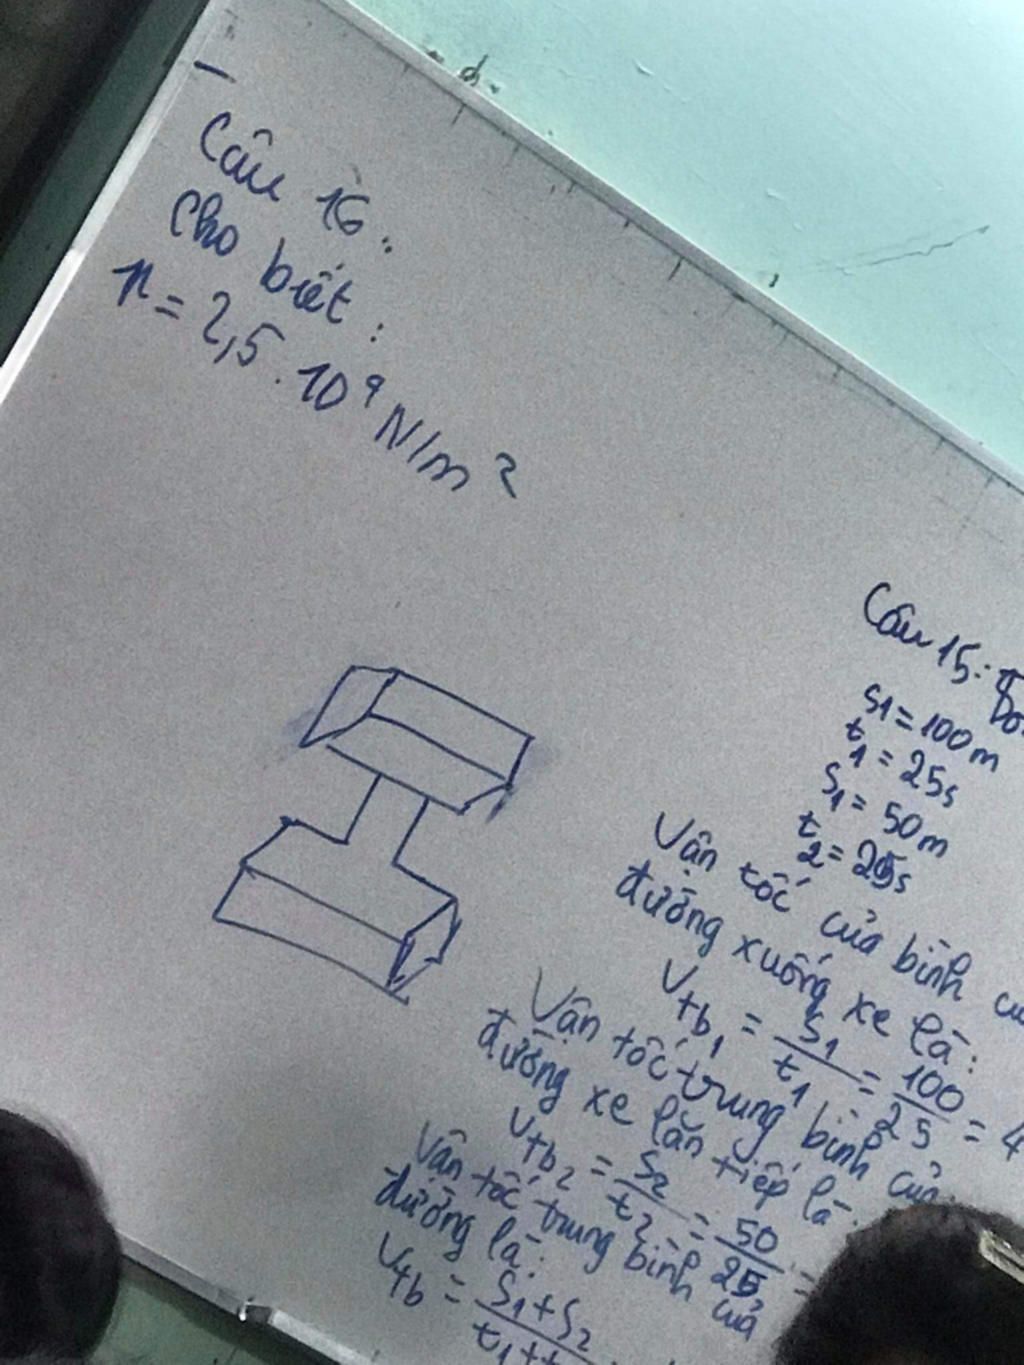 Câu 16:
Cho biết:
p = 2,5 . 10⁹ N/m²
Câu 15:
S1 = 100m
t1 = 25s
S1 = 50m
t2 = 25s
Vận tốc của bình
đường xuống xe là:
Vtb1 = S1/t1 = 100/25 = 4
Vận tốc trung bình của
đường xe lăn tiếp là:
Vtb2 = S2/t2 = 50/25 =
Vận tốc trung bình của
đường là:
Vtb = S1+S2/t1+t